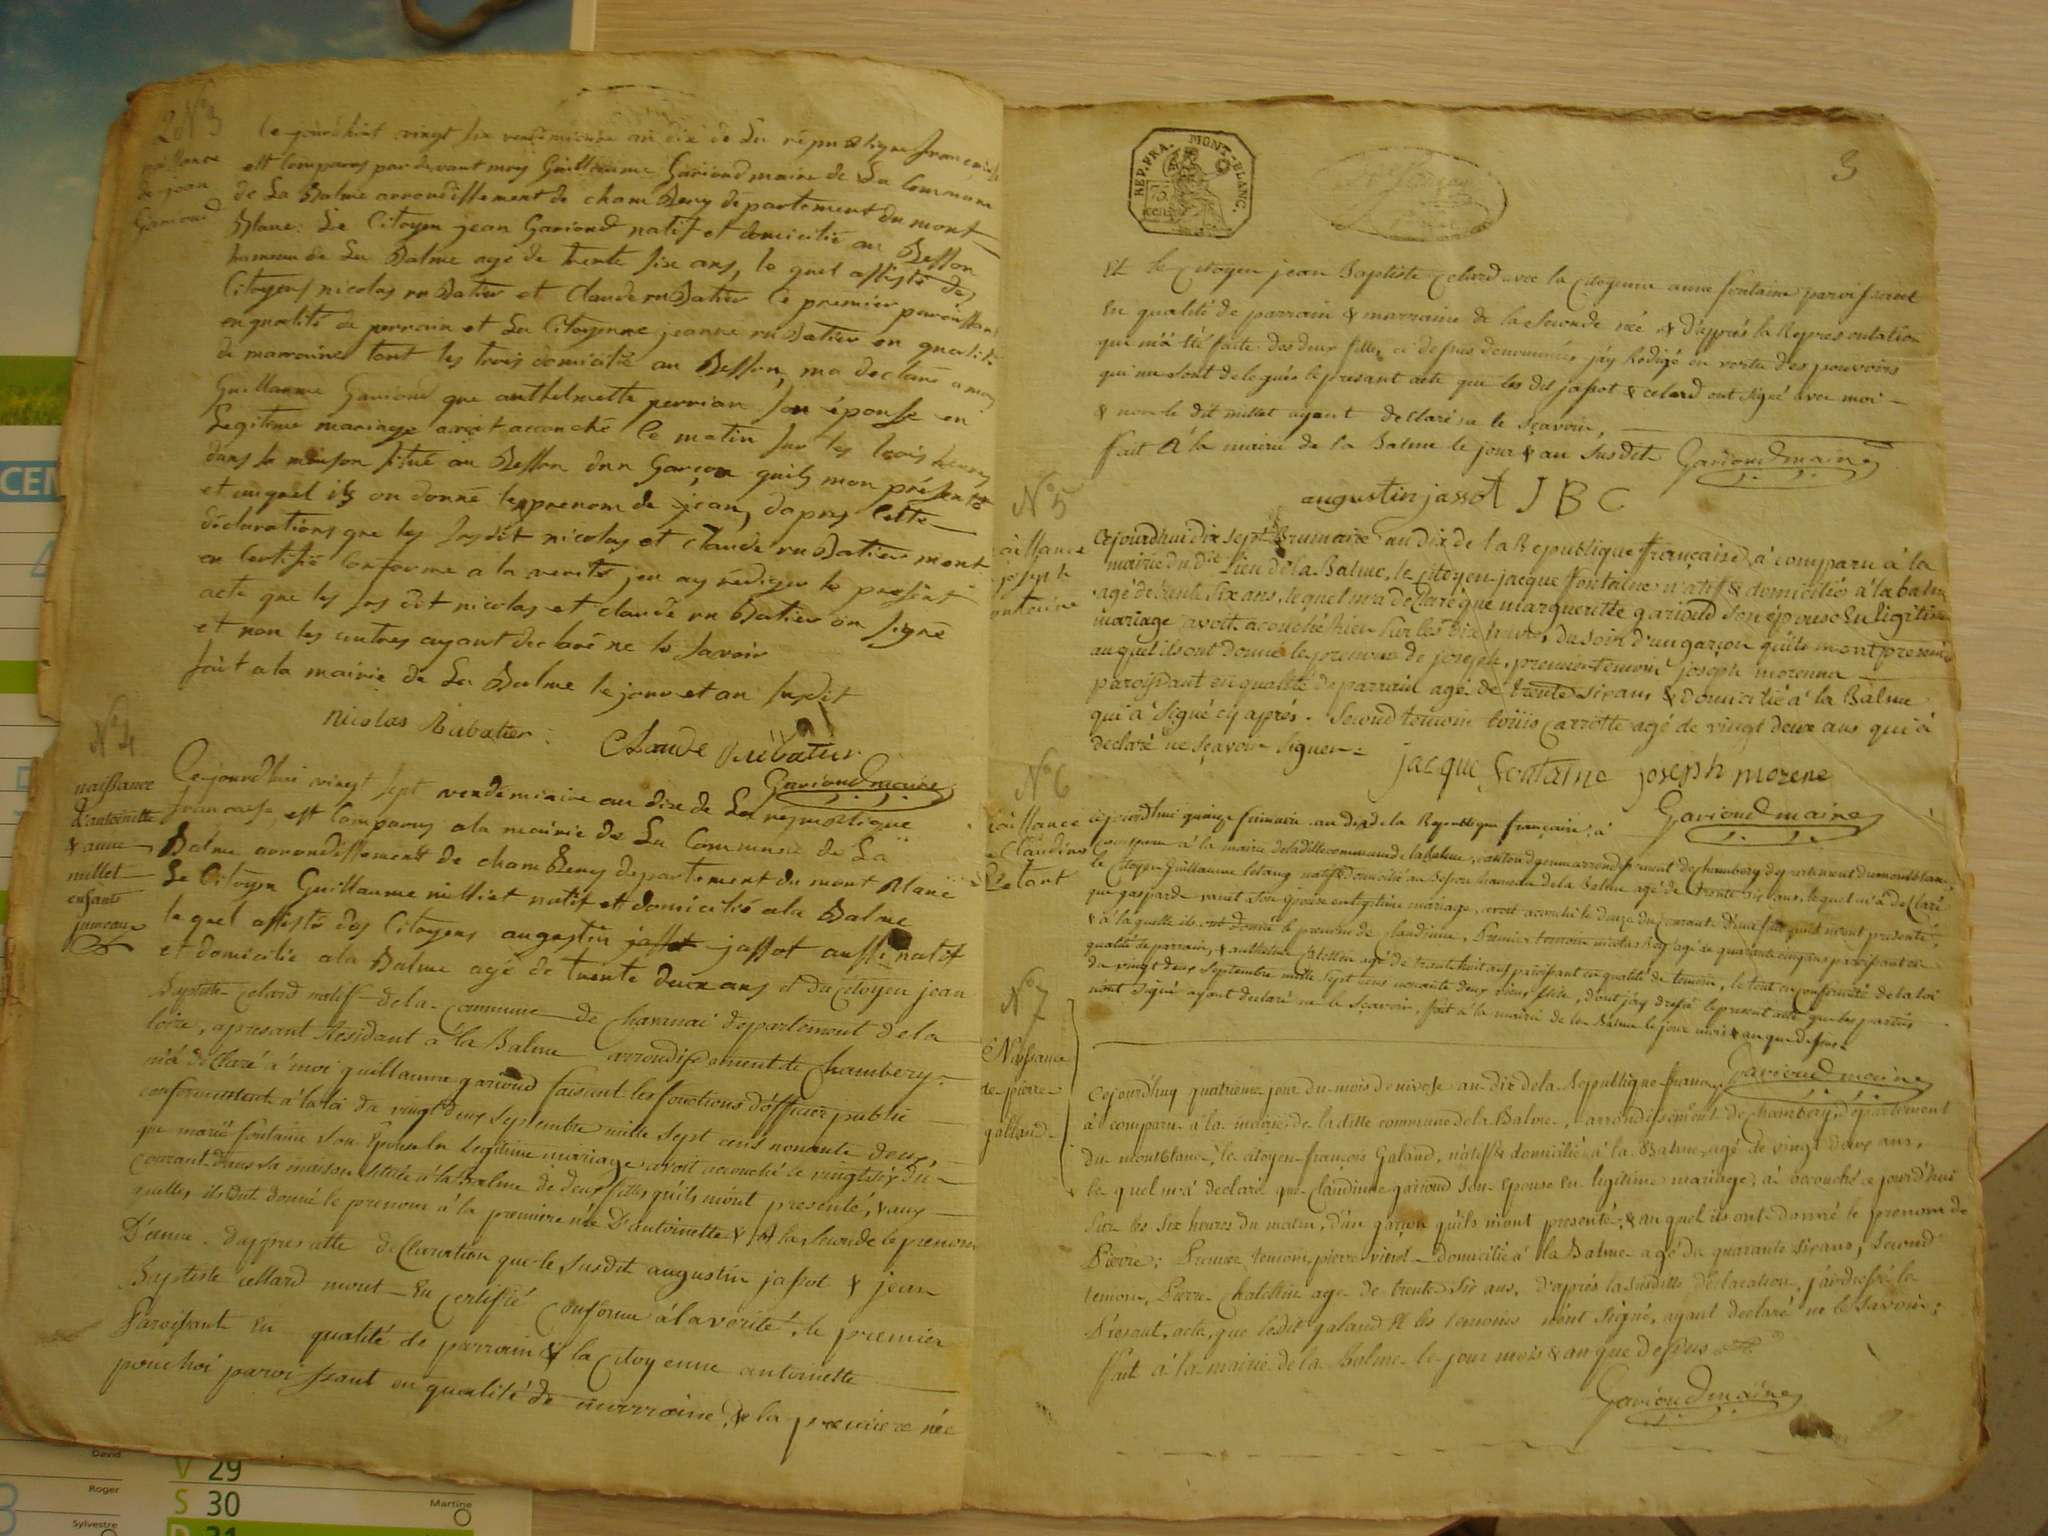 2 N° 3
naissance
de jean
Garioud
Ce jourdhuit vingt six vendemiaire an dix de La republique francaise
est Comparus par devant moy Guilleaume Garioud maire de La Commune
de La Balme arrondissement de chamBery departement du mont
Blanc. Le Citoyen jean Gariond natif et domicilié au Besson
hameau de La Balme agé de trente sixe ans, le quel assisté des
Citoyens nicolas ruBatier et Claude ruBatier le premier paroissant
en qualité de perrain et La Citoyenne jeanne ruBatier en qualité
de marraine tout les trois domicilié au Besson, ma declaré a moy
Guillaume Gariond que anthelmette perrian son épouse en
Legitime mariage avoit accouché Ce matin sur les trois heures
dans sa maison situé au Besson dun Garçon quils mon présenté
et auquel ils on donné le prenom de jean, dapres Cette
déclarations que les susdit nicolas et Claude ruBatier mont
en Certifié Conforme a la verité jen ay rédiger le present
acte que les sus dit nicolas et claude ruBatier on signé
et non les autres ayant declaré ne le savoir
fait a la mairie de La Balme le jour et an susdit
nicolas Rubatier
CLaude Rubatier
Garioud maire
N° 4
naissance
d'antoinette
& anne
millet
enfants
jumeaux
Cejourdhui vingt sept vendémiaire an dix de La republique
francaise, est Comparus a la mairie de La Commune de La
Balme arrondissement de chamBery departement du mont Blanc
Le Citoyen Guillaume milliet natif et domicilié ala Balme
le quel assisté des Citoyens augustin jassot aussi natif
et domicilié ala Balme agé de trente deux ans et du citoyen jean
Baptiste Celard natif de la commune de Chavanai departement de la
loire, apresant Residant á la Balme arrondissement de Chambery
m'á declaré á moi guillaume garioud faisant les fonctions d'officier public
conformement á la loi du vingt deux septembre mille sept cens nonante deux,
que marie fontaine son Epouse en legitime mariage avoit accouché le vingtsix du
courant dans sa maison située á la Balme de deux filles qu'ils m'ont presenté, & aux
quelles ils ont donné le prenom á la premiere née D'antoinette & á la seconde le prenom
D'anne. d'apprès cette declaration que le susdit augustin jassot & jean
Baptiste cellard mont En certifié conforme á la verité, le premier
Paroissant En qualité de parrain & la citoyenne antoinette
pouchoi paroissant en qualité de marraine, de la premiere née
REP. FRA. MONT-BLANC.
3
Et le Citoyen jean Baptiste Celard avec la Citoyenne anne fontaine paroissant
En qualité de parrain & marraine de la seconde née & d'apprès la Representation
qui m'á été faite des deux filles ci dessus denommées j'ay Redigé en vertu des pouvoirs
qui me sont delegués le presant acte que les dis jassot & celard ont signé avec moi
& non le dit millet ayant declaré ne le sçavoir.
fait á la mairie de la Balme le jour & an susdit Garioud maire
augustin jassot J B C
N° 5
naissance
joseph
fontaine
Cejourdhui dix sept Brumaire an dix de la Republique française á comparu á la
mairie du dit lieu de la Balme, le citoyen jacque fontaine natif & domicilié á la balme
agé de trente six ans, lequel ma declaré que margueritte garioud son épouse En ligitime
mariage avoit acouché hier sur les dix heures du soir d'un garçon qu'ils m'ont presenté
auquel ils ont donné le prenom de joseph, premier temoin joseph morenne
paroissant en qualité de parrain agé de trente six ans & domicilié á la Balme
qui á signé cy aprés. Second temoin loüis carrotte agé de vingt deux ans qui á
declaré ne sçavoir signer
jacque fontaine joseph morene
Garioud maire
N° 6
naissance
Claudine
Letant
cejourdhui quinze frimaire an dix de la Republique française, á
comparu á la mairie de la ditte commune de la Balme, arrondissement de chambery departement du montblanc
le Citoyen Guillaume natif & domicilié au Besson hameau de la Balme agé de trente six ans, lequel m'a declaré
que son épouse en legitime mariage, avoit accouché le douze du courant d'une fille qu'ils m'ont presenté,
& á laquelle ils ont donné le prenom de claudine. Premier temoin nicolas Rey agé de quarante cinq ans paroissant en
qualité de parrain, & anthelme agé de trente huit ans paroissant en qualité de temoin, le tout en conformité de la loi
du vingt deux septembre mille sept cens nonante deux stile, d'ont j'ay dressé le present acte que les parties
n'ont signé ayant declaré ne le sçavoir, fait á la mairie de la Balme le jour mois & an que dessus
Garioud maire
N° 7
Naissance
de pierre
galland
Cejourd'huy quatrieme jour du mois de nivose an dix de la Republique française
á comparu á la mairie de la ditte commune de la Balme, arrondissement de Chambery, departement
du montblanc, le citoyen françois Galand, natif & domicilié á la Balme agé de vingt deux ans,
le quel m'á declaré que Claudinne garioud son Epouse En ligitime mariage, á accouché cejourd'hui
sur les six heures du matin, d'un garçon qu'ils m'ont presenté, & au quel ils ont donné le prenom de
Pierre; Premier temoin pierre domicilié á la Balme agé de quarante six ans, second
temoin, Pierre Chatellin agé de trente six ans. d'aprés la susditte declaration, j'ai dressé le
Présent, acte, que ledit galand & les temoins n'ont signé, ayant declaré ne le savoir;
fait á la mairie de la Balme le jour mois & an que dessus
Garioud maire
V 29
S 30
D 31
David
Roger
Sylvestre
Martine